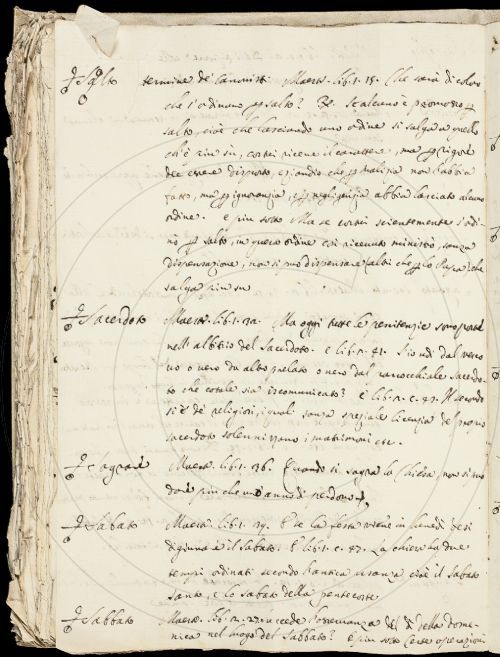 Salto termine de' Canonisti Maestr. lib. 1. 15. Che sarà di coloro
che s'ordinano p salto? Se alcuno è promosso p
salto, cioè che lasciando uno ordine si salga a quello
ch'è più su, costui riceve il carattere, ma p rigore
dee essere disposto, eziandio che p malizia non l'abbia
fatto, ma p ignoranzia, e p negligenzia abbia lasciato alcuno
ordine. e più sotto Ma se costui scientemente s'ordi-
nò p salto, in questo ordine così ricevuto ministrò, senza
dispensazione, non si può dispensare (altri che lo Papa) che
salga più su
Sacerdoto Maestr. lib. 1. 32. Ma oggi tutte le penitenzie sono poste
nell'albitrio del Sacerdoto. e lib. 2. c. 41. S'o udì dal vesco
vo o vero da altro prelato o vero dal parrocchiale sacerdo-
to che cotale sia iscomunicato? e lib. 2. c. 47. Il secondo
si è de' religiosi, i quali sanza speziale licenzia del propio
sacerdoto solennizzano i matrimoni etc.
Sagrare Maestr. lib. 1. 36. Quando si sagra la Chiesa, non si può
dare più che uno anno di perdono
Sabato Maestr. lib. 1. 19. E se la festa viene in lunedì desi
digiunare il sabato. E lib. 1. c. 47. La chiesa in due
tempi ordinati secondo l'antica usanza cioè il sabato
santo, e lo sabato della pentecoste
Sabbato Maestr. lib. 2. succede l'osservanza del dì della dome-
nica nel luogo del Sabbato? e più sotto certe operazioni